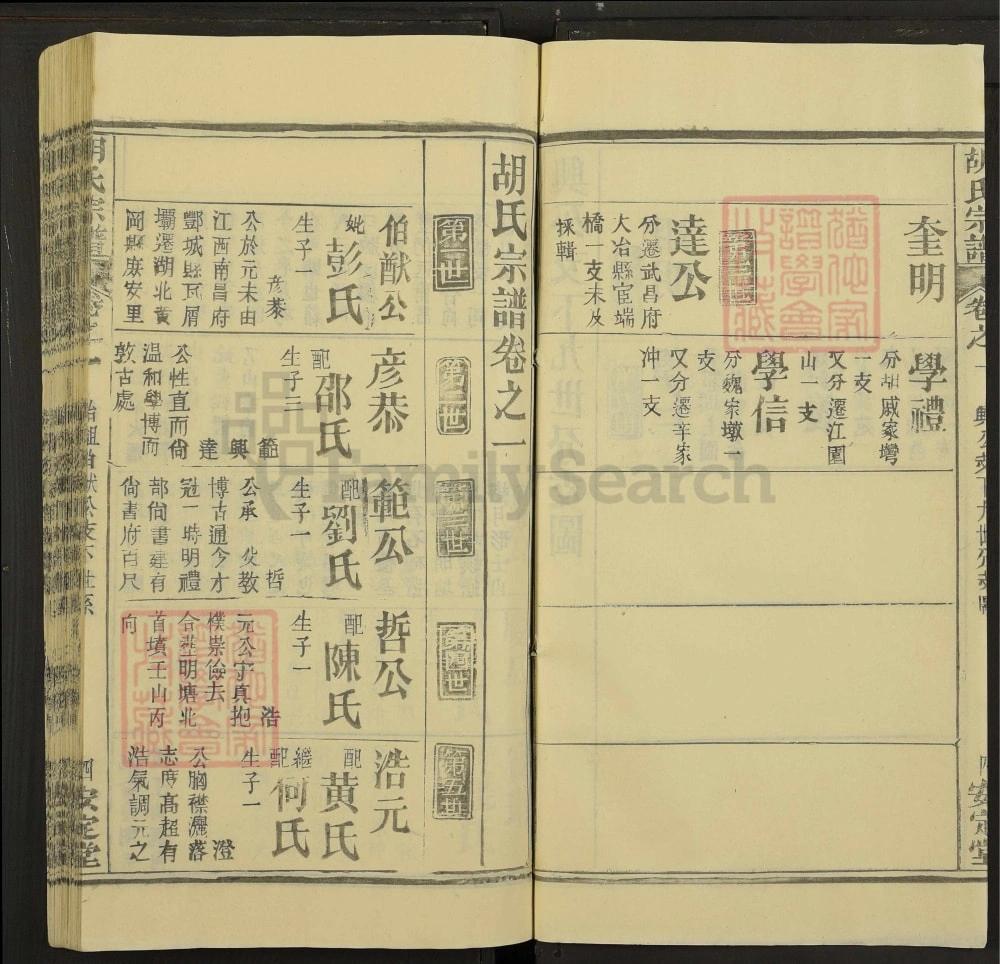 胡氏宗譜
奎明
學禮
分胡戚家灣
一支
又分遷江園
山一支
學信
分魏家墩一
支
又分遷辛家
沖一支
達公
分遷武昌府
大冶縣宦端
橋一支未及
採輯
安定堂
胡氏宗譜卷之一
第一世
伯猷公
妣彭氏
生子一
彥恭
公於元末由
江西南昌府
酆城縣瓦屑
壩遷湖北黃
岡縣庶安里
第二世
彥恭
配邵氏
生子三
範
興
達
公性直而尙
溫和學博而
敦古處
第三世
範公
配劉氏
生子一
哲
公承父敎
博古通今才
冠一時明禮
部尙書建有
尙書府百尺
第四世
哲公
配陳氏
生子一
浩
元公守真抱
樸崇儉去
合塟明塘北
首墳壬山丙
向
第五世
浩元
配黃氏
繼配何氏
生子一
澄
公胸襟灑落
志度高超有
浩氣調元之
安定堂
FamilySearch